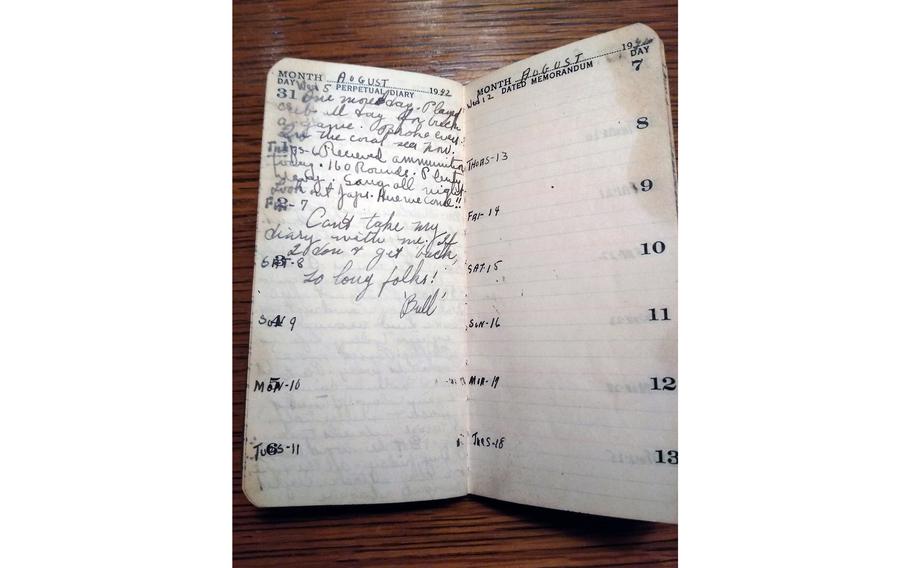 MONTH AUGUST 1942
DAY Wed 5 PERPETUAL DIARY
31 One more day. Played
crib all day for buck
a game. phone every
In the coral sea now.
Thurs-6 Recieved ammunition
today. 160 Rounds. Plenty
heavy. Sang all night.
Look out Japs. Here we come!!
FRI-7
2
Can't take my
diary with me. If
I don't get back,
SAT-8
3
So long folks!
'Bull'
SUN 9
4
MON-10
5
TUES-11
6
MONTH AUGUST 1942
Wed 12 DATED MEMORANDUM DAY
7
8
THURS-13
9
FRI-14
10
SAT.15
11
SUN-16
12
MON-19
13
TUES-18